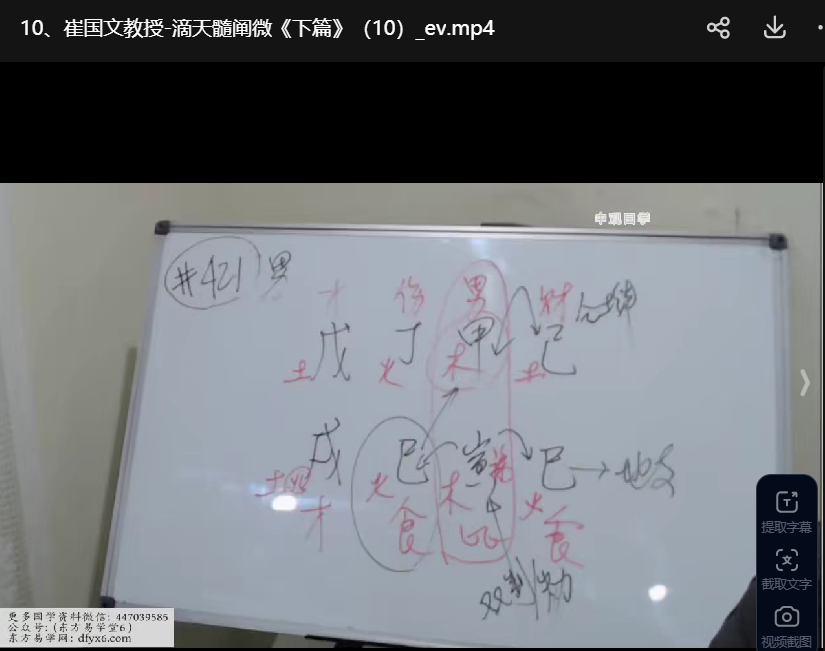 10、崔国文教授-滴天髓阐微《下篇》（10）_ev.mp4
中观国学
#421 男
才 伤 男 财
戊 丁 甲 己
土 火 木 土
戌 巳 寅 巳 → 地支
土 火 木 火
才 食 比 食
提取字幕
截取文字
视频截图
更多国学资料微信：447039585
公众号：(东方易学堂6)
东方易学网：dfyx6.com